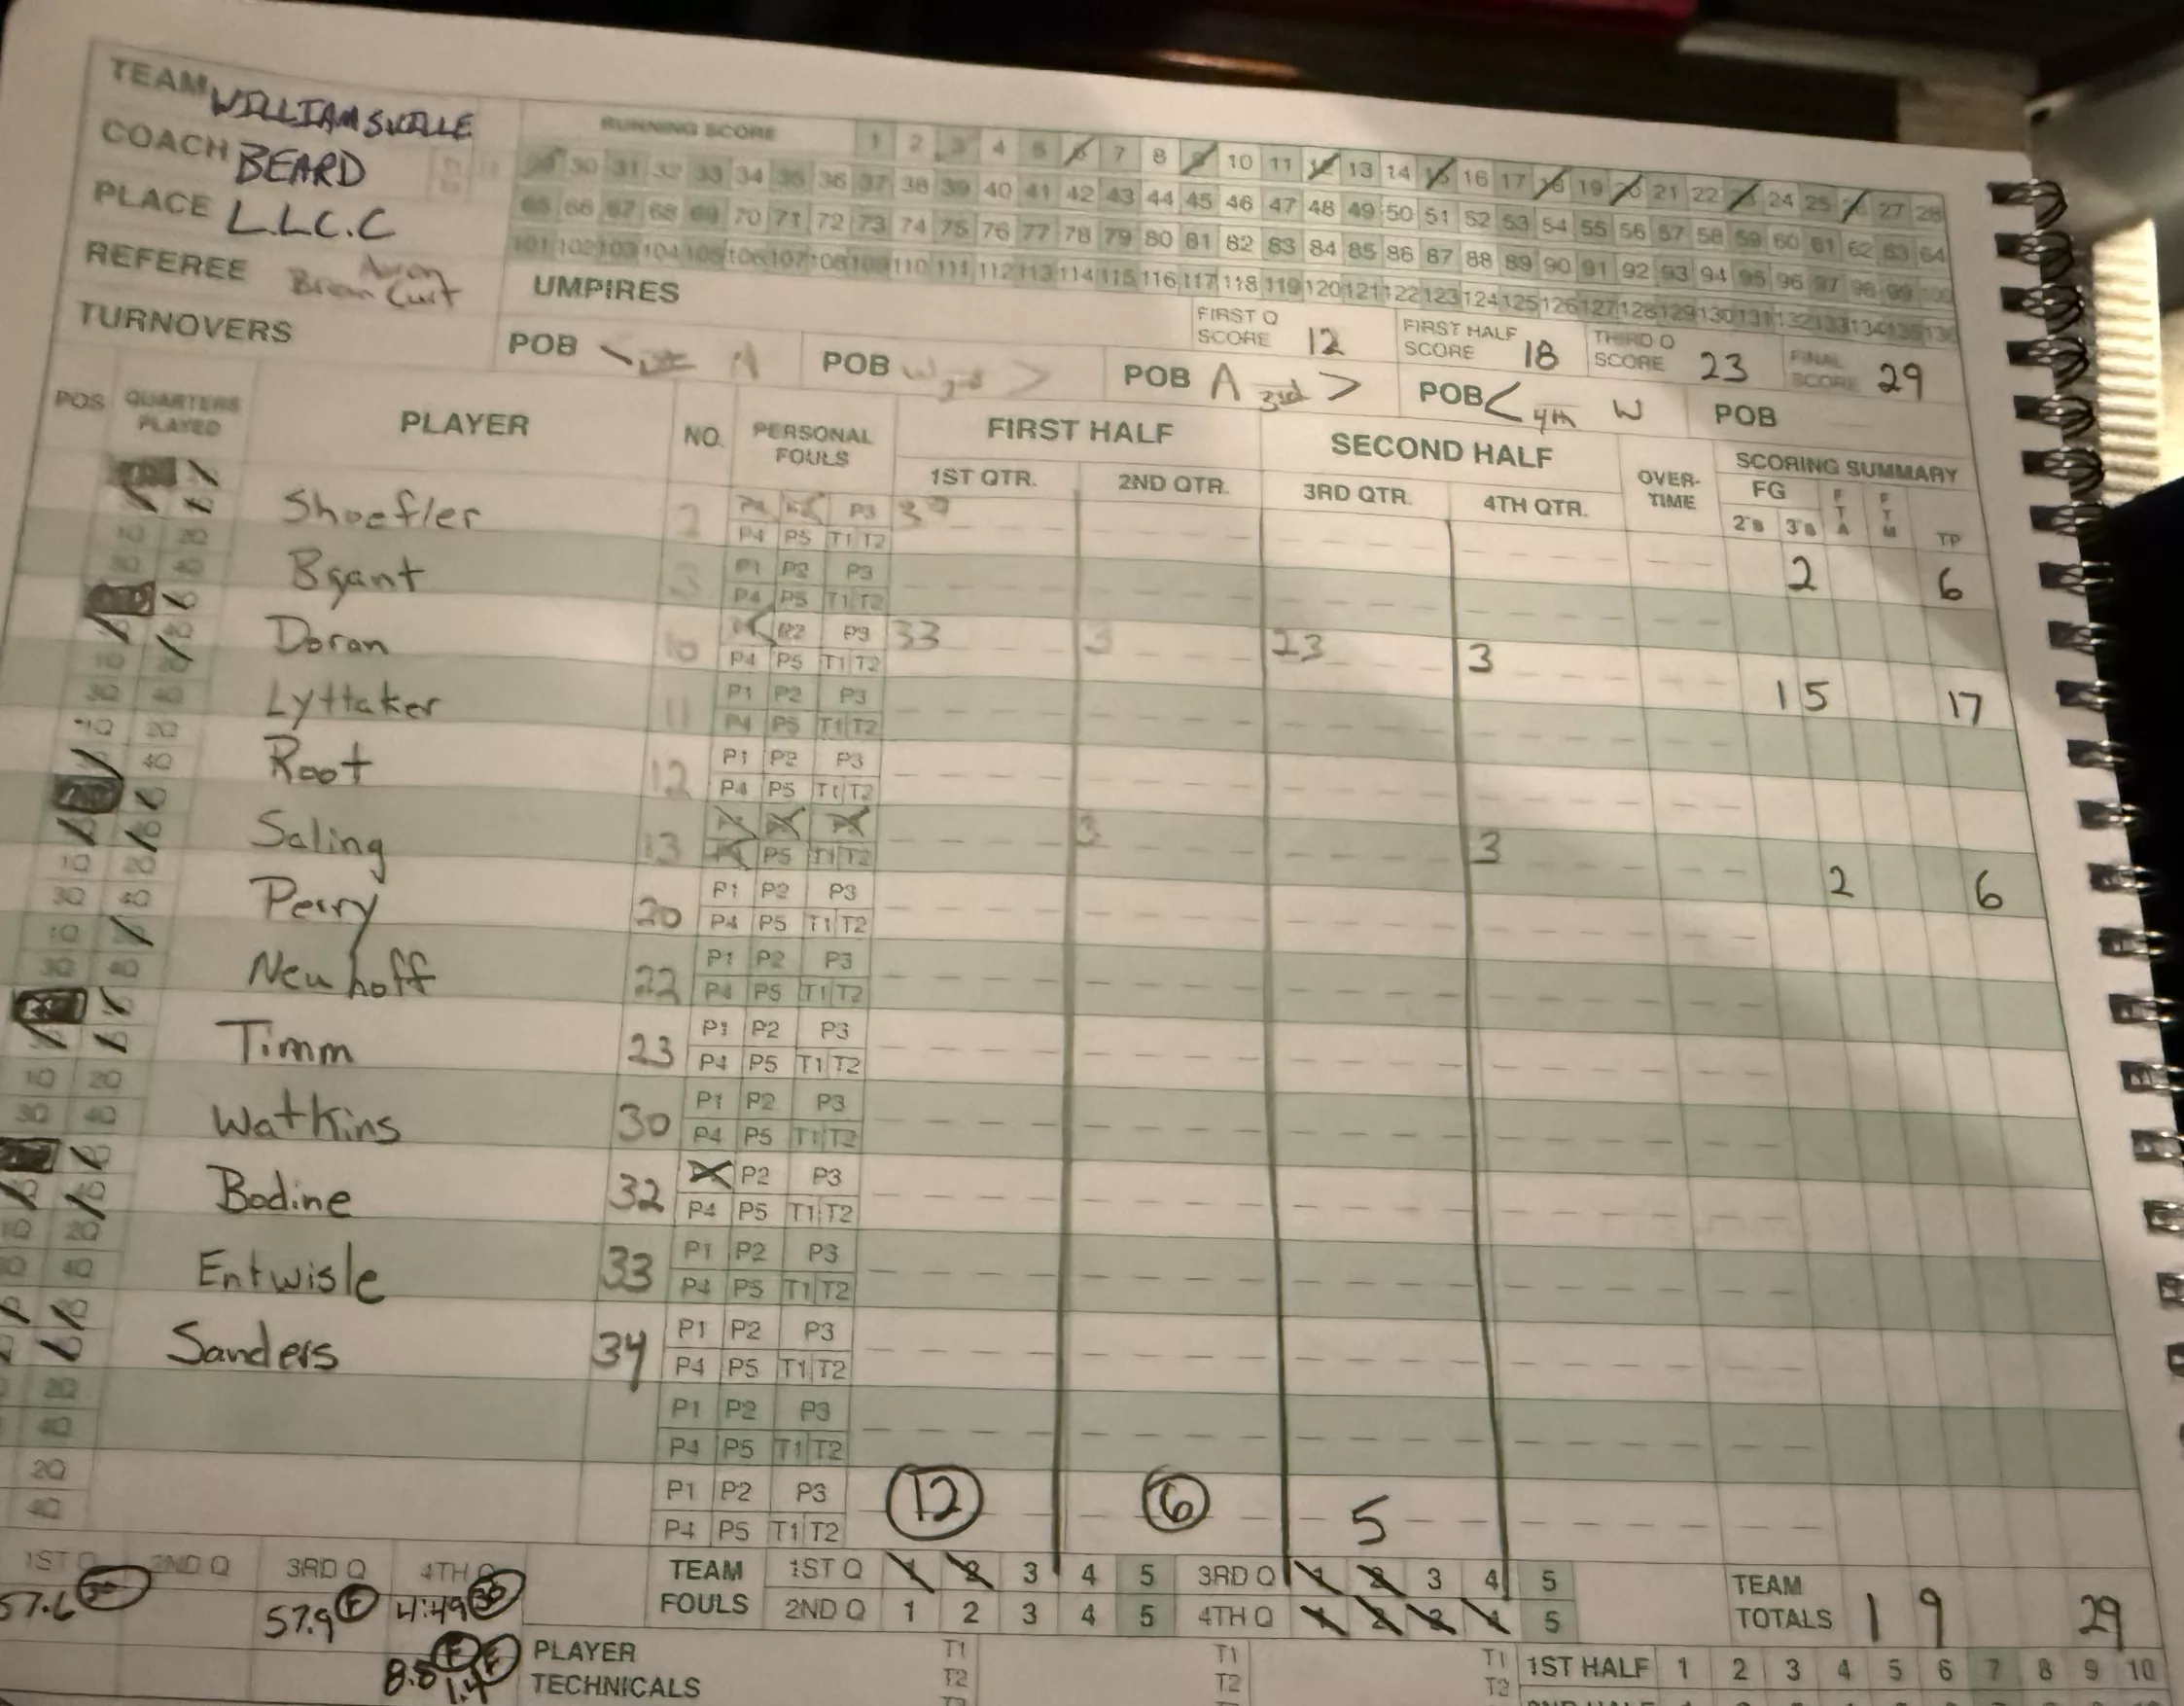 TEAM WILLIAMSVILLE
COACH BEARD
PLACE L.L.C.C
REFEREE Brian Curt
TURNOVERS
RUNNING SCORE 1 2 3 4 5 6 7 8 9 10 11 12 13 14 15 16 17 18 19 20 21 22 23 24 25 26 27 28
29 30 31 32 33 34 35 36 37 38 39 40 41 42 43 44 45 46 47 48 49 50 51 52 53 54 55 56 57 58 59 60 61 62 63 64
65 66 67 68 69 70 71 72 73 74 75 76 77 78 79 80 81 82 83 84 85 86 87 88 89 90 91 92 93 94 95 96 97 98 99 100
101 102 103 104 105 106 107 108 109 110 111 112 113 114 115 116 117 118 119 120 121 122 123 124 125 126 127 128 129 130 131 132 133 134 135 136
UMPIRES
FIRST Q SCORE 12
FIRST HALF SCORE 18
THIRD Q SCORE 23
FINAL SCORE 29
POB A POB W 2nd > POB A 3rd > POB < 4th W POB
POS QUARTERS PLAYED PLAYER NO. PERSONAL FOULS FIRST HALF SECOND HALF OVER-TIME SCORING SUMMARY
1ST QTR. 2ND QTR. 3RD QTR. 4TH QTR. FG 2's 3's FTA FTM TP
Shoefler 2 P3 2 6
P4 P5 T1 T2
10 20 Bgant 3 P1 P2 P3
30 40 P4 P5 T1 T2
Doran 10 P2 P3 33 3 23 3 1 5 17
P4 P5 T1 T2
10 20 Lyttaker 11 P1 P2 P3
30 40 P4 P5 T1 T2
10 20 Root 12 P1 P2 P3
40 P4 P5 T1 T2
Saling 13 3 3 2 6
P5 T1 T2
10 20 Perry 20 P1 P2 P3
30 40 P4 P5 T1 T2
10 Neuhoff 22 P1 P2 P3
30 40 P4 P5 T1 T2
Timm 23 P1 P2 P3
P4 P5 T1 T2
10 20 Watkins 30 P1 P2 P3
30 40 P4 P5 T1 T2
Bodine 32 P2 P3
P4 P5 T1 T2
10 20 Entwisle 33 P1 P2 P3
40 P4 P5 T1 T2
Sanders 34 P1 P2 P3
P4 P5 T1 T2
20 P1 P2 P3
40 P4 P5 T1 T2
20 P1 P2 P3 12 6 5
40 P4 P5 T1 T2
1ST Q 2ND Q 3RD Q 4TH Q
57.6 57.9 F 4:49 30
8.8 F 1.4 F
TEAM FOULS 1ST Q 1 2 3 4 5 3RD Q 1 2 3 4 5
2ND Q 1 2 3 4 5 4TH Q 1 2 3 4 5
TEAM TOTALS 1 9 29
PLAYER TECHNICALS T1 T1 T1
T2 T2 T2
1ST HALF 1 2 3 4 5 6 7 8 9 10